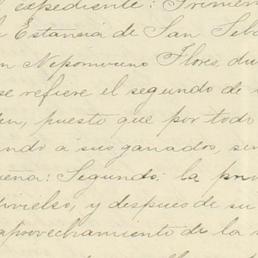 expediente: Primer
Estansia de San Seb
n Nepomuceno Flores, du
se refiere el segundo de
en, puesto que por todo
ando a sus ganados, se
eña: Segundo: la
ivielso, y despues de su
aprovechamiento de la